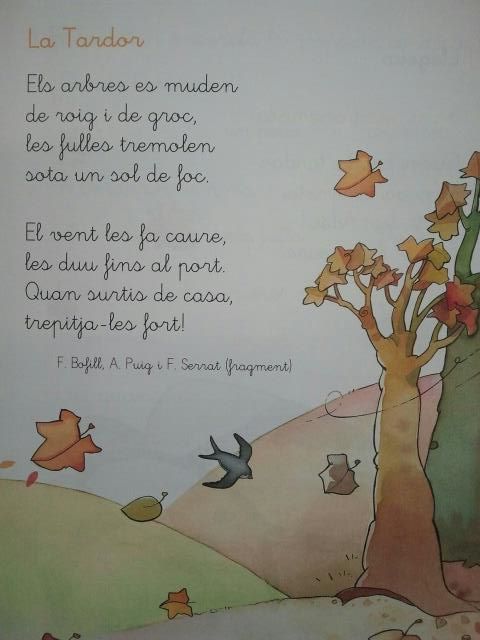 La Tardor
Els arbres es muden
de roig i de groc,
les fulles tremolen
sota un sol de foc.
El vent les fa caure,
les duu fins al port.
Quan surtis de casa,
trepitja-les fort!
F. Bofill, A. Puig i F. Serrat (fragment)